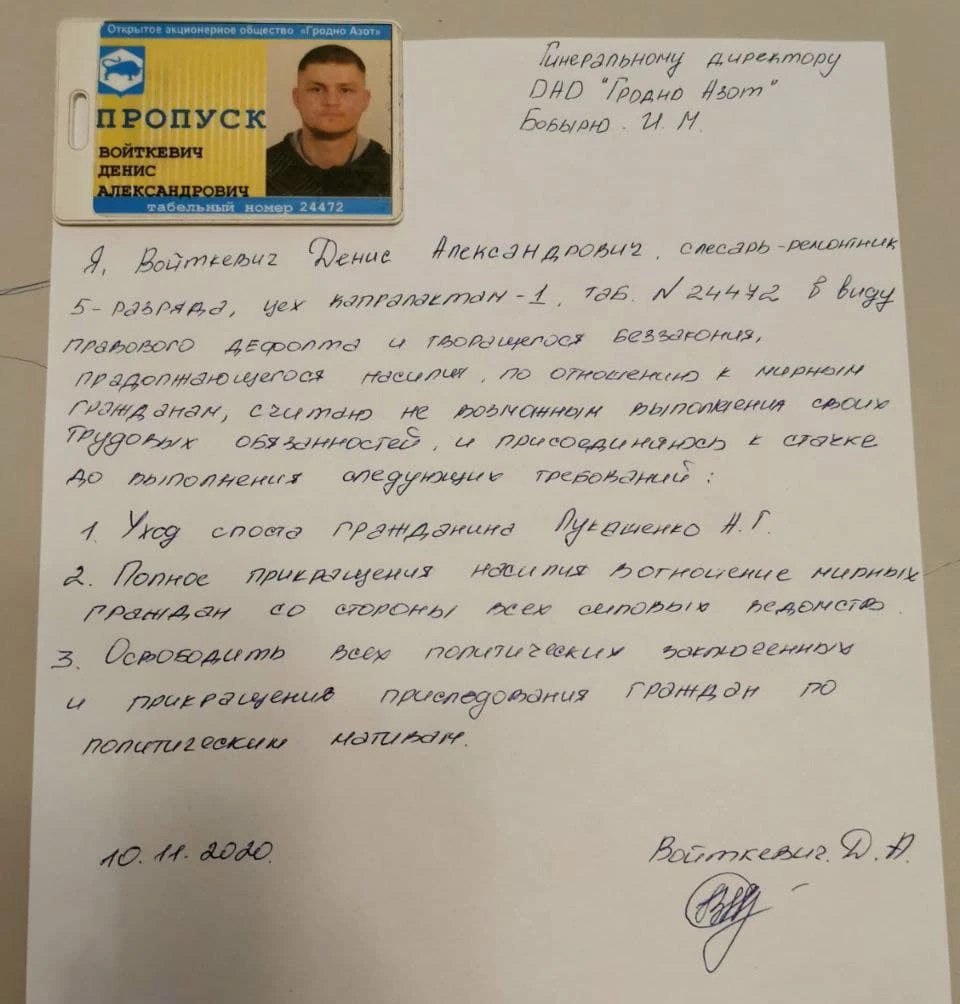 Открытое акционерное общество «Гродно Азот»
ПРОПУСК
ВОЙТКЕВИЧ
ДЕНИС
АЛЕКСАНДРОВИЧ
табельный номер 24472
Гинеральному директору
ОАО "Гродно Азот"
Бобырю. И. М.
Я, Войткевич Денис Александрович, слесарь-ремонтник
5-разряда, цех капралактам-1, таб. N 24472 в виду
правового дефолта и творащегося беззакония,
прадолжающегося насилия, по отношению к мирным
гражданам, считаю не возможным выполнения своих
трудовых обязанностей, и присоединяюсь к стачке
до выполнения следующих требований:
1. Уход споста гражданина Лукашенко А. Г.
2. Полное прикращения насилия вотношение мирных
граждан со стороны всех силовых ведомств.
3. Освободить всех политических заключенных
и прикращения приследования граждан по
политическим мативам.
10.11.2020.
Войткевич. Д. А.